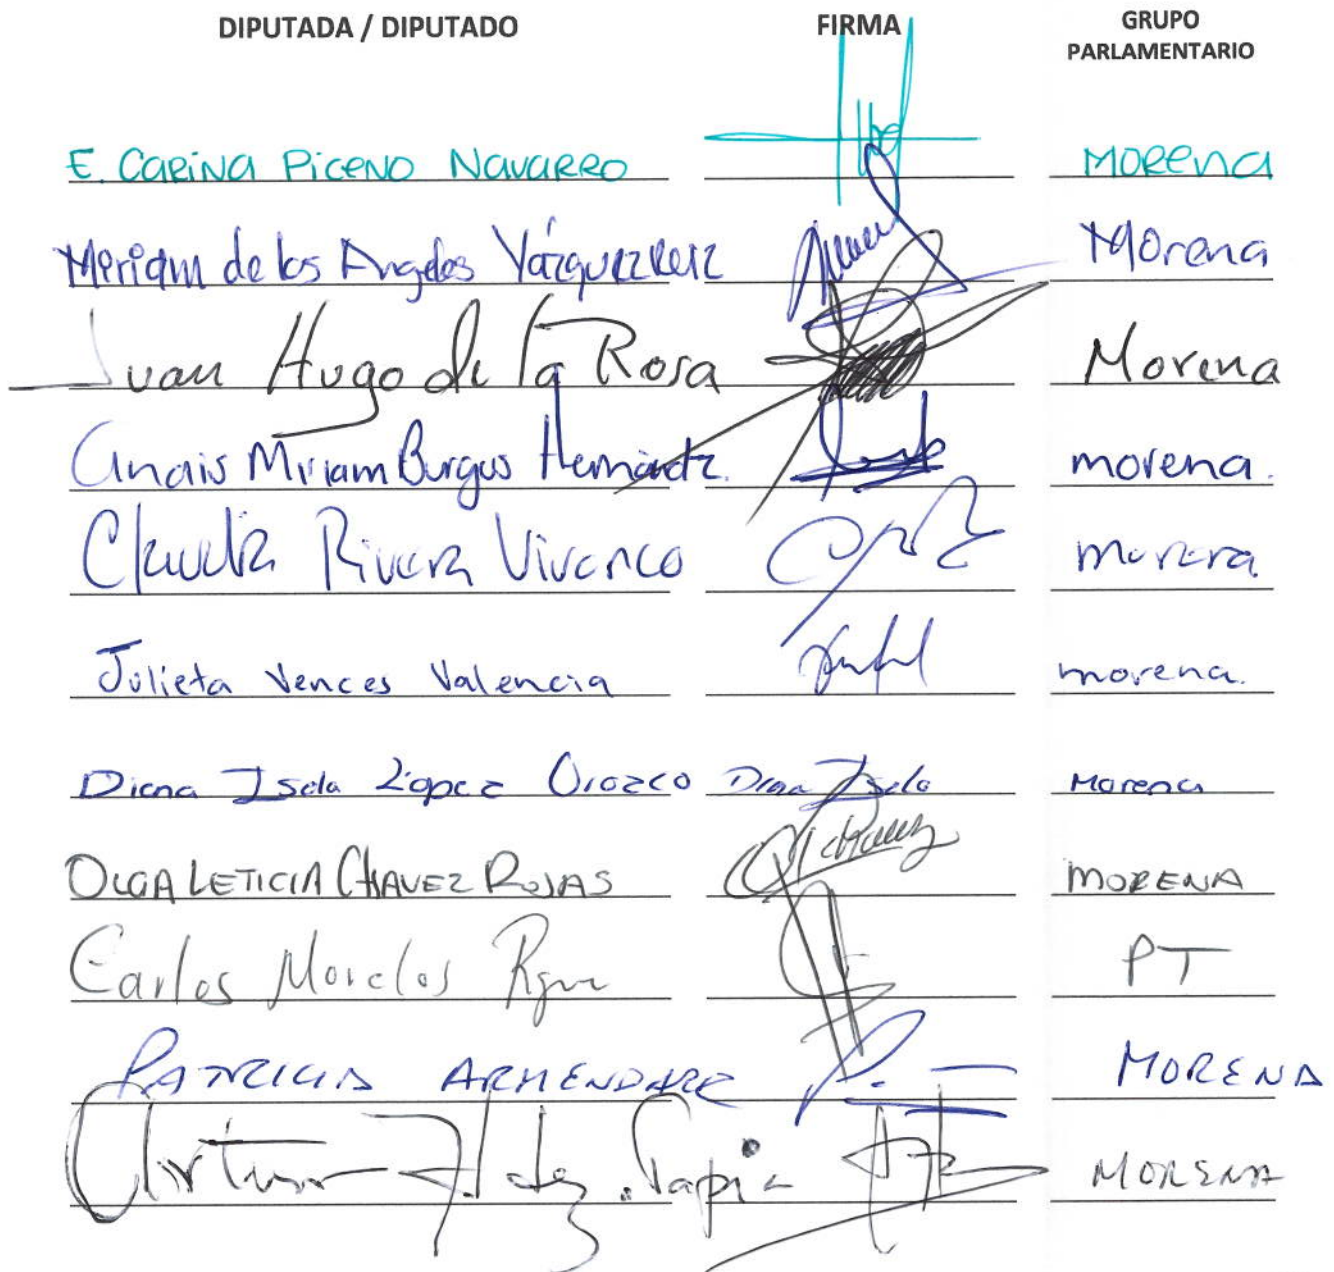 DIPUTADA / DIPUTADO FIRMA GRUPO PARLAMENTARIO
E. CARINA PICENO NAVARRO MORENA
Miriam de los Angeles Vázquez Ruiz Morena
Juan Hugo de la Rosa Morena
Anais Miriam Burgos Hernández morena.
Claudia Rivera Vivanco morena
Julieta Vences Valencia morena.
Diana Isela López Orozco Diana Isela Morena
OLGA LETICIA CHAVEZ ROJAS MORENA
Carlos Morelos PT
PATRICIA ARMENDARIZ MORENA
Artur Tapia MORENA